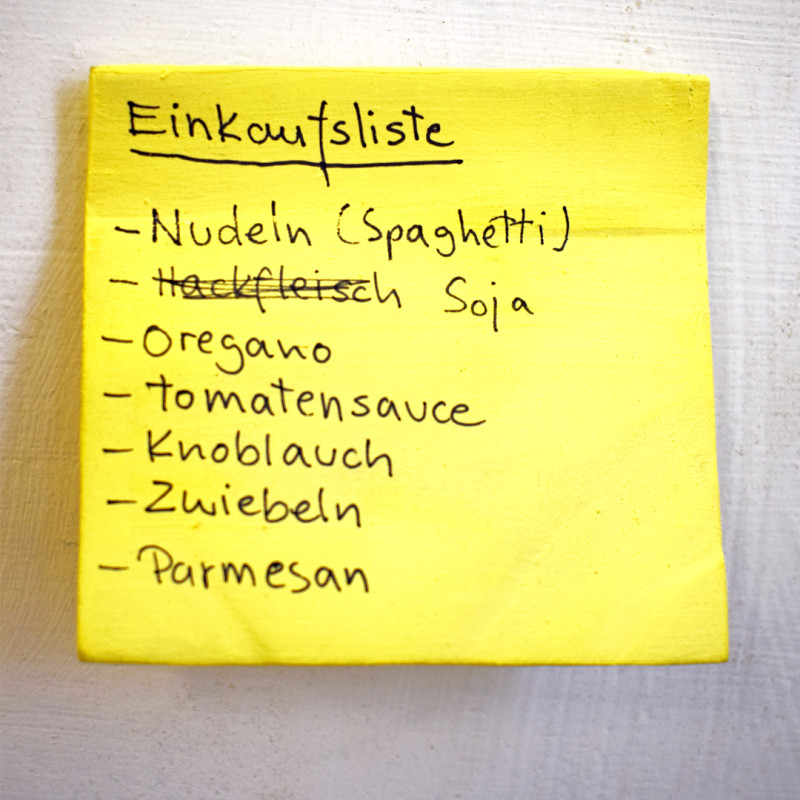 Einkaufsliste
- Nudeln (Spaghetti)
- Hackfleisch Soja
- Oregano
- Tomatensauce
- Knoblauch
- Zwiebeln
- Parmesan